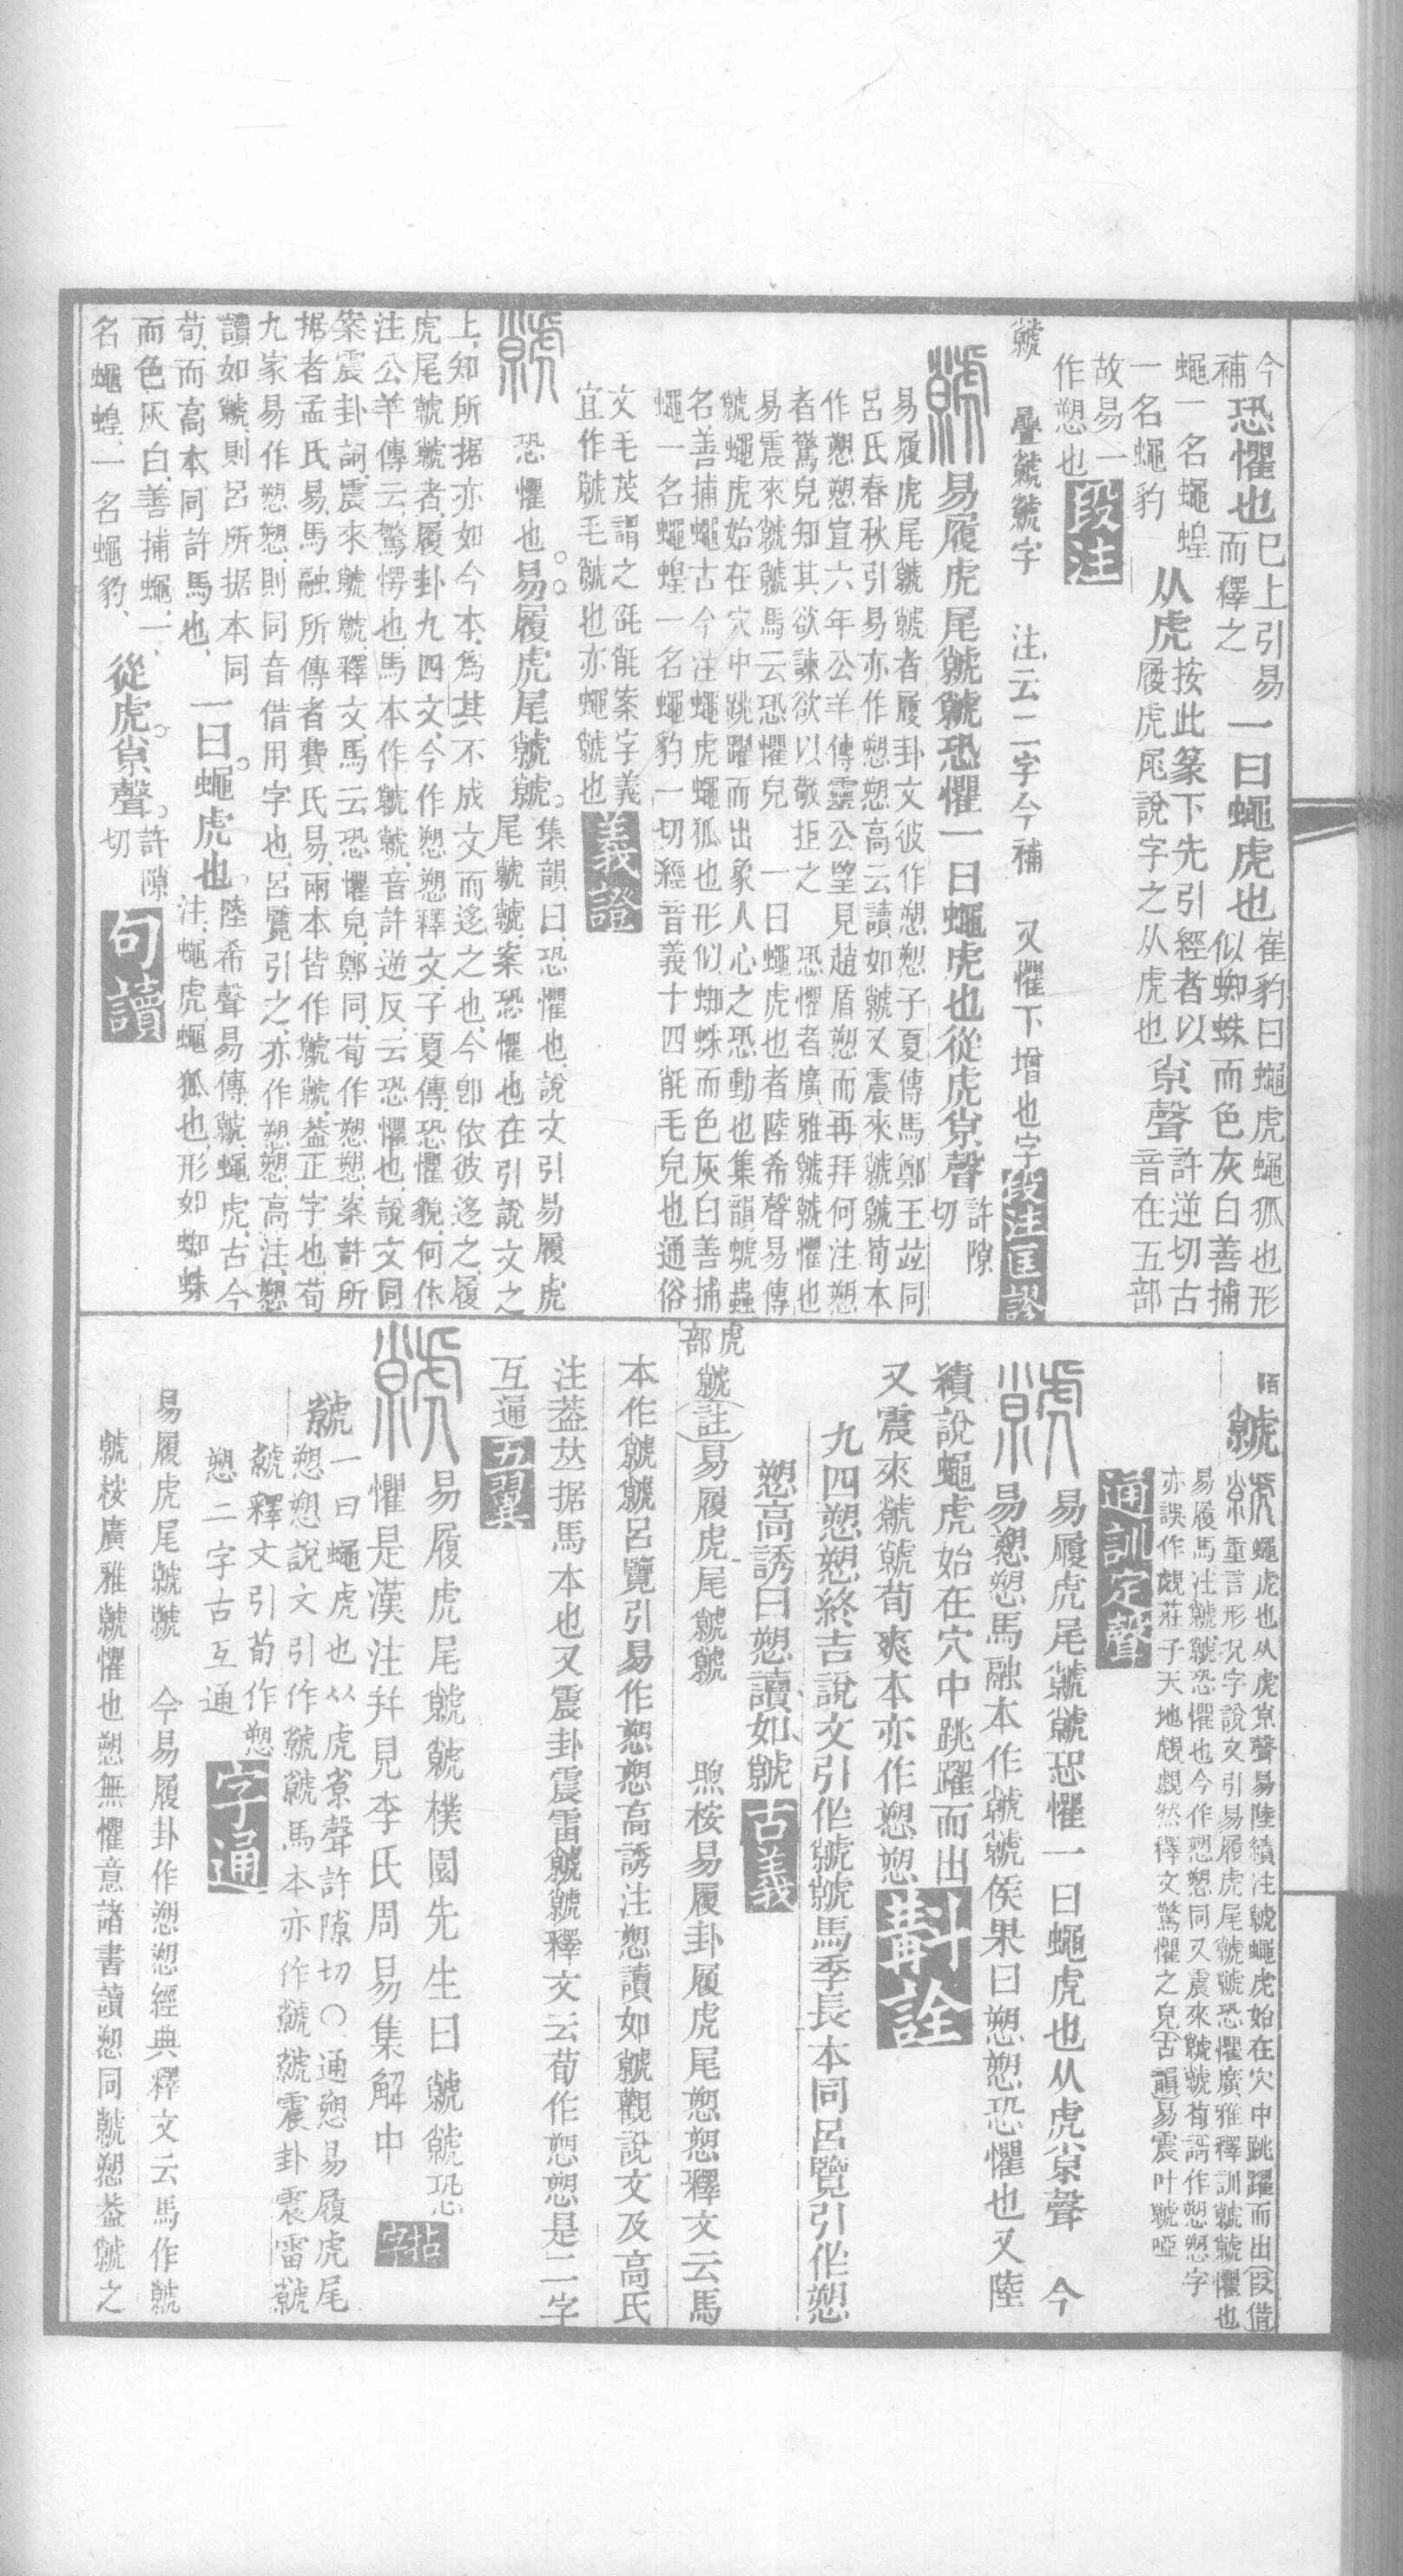 今
補恐懼也已上引易
而釋之一曰蠅虎也崔豹曰蠅虎蠅狐也形
似蜘蛛而色灰白善捕
蠅一名蠅蝗
一名蠅豹从虎按此篆下先引經者以
履虎尾說字之从虎也𡭴聲許逆切古
音在五部
故易一
作愬也段注
虩 疊虩虩字 注云二字今補 又懼下增也字段注匡謬
易履虎尾虩虩恐懼一曰蠅虎也從虎𡭴聲許隙
切
易履虎尾虩虩者履卦文彼作愬愬子夏傳馬鄭王竝同
呂氏春秋引易亦作愬愬高云讀如虩又震來虩虩荀本
作愬愬宣六年公羊傳靈公望見趙盾愬而再拜何注愬
者驚皃知其欲諫欲以敬拒之 恐懼者廣雅虩虩懼也
易震來虩虩馬云恐懼皃 一曰蠅虎也者陸希聲易傳
虩蠅虎始在穴中跳躍而出象人心之恐動也集韻虩蟲
名善捕蠅古今注蠅虎蠅狐也形似蜘蛛而色灰白善捕
蠅一名蠅蝗一名蠅豹一切經音義十四毹毛皃也通俗
文毛茂謂之案字義
宜作虩毛虩也亦蠅虩也義證
恐懼也易履虎尾虩虩集韻曰恐懼也說文引易履虎
尾虩虩案恐懼也在引說文之
上知所据亦如今本爲其不成文而迻之也今卽依彼迻之履
虎尾虩虩者履卦九四文今作愬愬釋文子夏傳恐懼貌何休
注公羊傳云驚愕也馬本作虩虩音許逆反云恐懼也說文同
案震卦詞震來虩虩釋文馬云恐懼皃鄭同荀作愬愬案許所
据者孟氏易馬融所傳者費氏易兩本皆作虩虩葢正字也荀
九家易作愬愬則同音借用字也呂覽引之亦作愬愬高注愬
讀如虩則呂所据本同
荀而高本同許馬也一曰蠅虎也陸希聲易傳虩蠅虎古今
注蠅虎蠅狐也形如蜘蛛
而色灰白善捕蠅一
名蠅蝗一名蠅豹從虎𡭴聲許隙
切句讀
陌虩蠅虎也从虎𡭴聲易陸績注虩蠅虎始在穴中跳躍而出叚借
重言形況字說文引易履虎尾虩虩恐懼廣雅釋訓虩虩懼也
易履馬注虩虩恐懼也今作愬愬同又震來虩虩荀謂作愬愬字
亦誤作覤莊子天地覤覤然釋文驚懼之皃古韻易震叶虩啞
通訓定聲
易履虎尾虩虩恐懼一曰蠅虎也从虎𡭴聲 今
易愬愬馬融本作虩虩侯果曰愬愬恐懼也又陸
績說蠅虎始在穴中跳躍而出
又震來虩虩荀爽本亦作愬愬斠詮
九四愬愬終吉說文引作虩虩馬季長本同呂覽引作愬
愬高誘曰愬讀如虩古義
虎部虩註易履虎尾虩虩 煦桉易履卦履虎尾愬愬釋文云馬
本作虩虩呂覽引易作愬愬高誘注愬讀如虩觀說文及高氏
注葢竝据馬本也又震卦震雷虩虩釋文云荀作愬愬是二字
互通五翼
易履虎尾虩虩樸園先生曰虩虩恐
懼是漢注幷見李氏周易集解中拈字
虩一曰蠅虎也从虎𡭴聲許隙切○通愬易履虎尾
愬愬說文引作虩虩馬本亦作虩虩震卦震雷虩
虩釋文引荀作愬
愬二字古互通字通
易履虎尾虩虩 今易履卦作愬愬經典釋文云馬作虩
虩桉廣雅虩懼也愬無懼意諸書讀愬同虩愬葢虩之